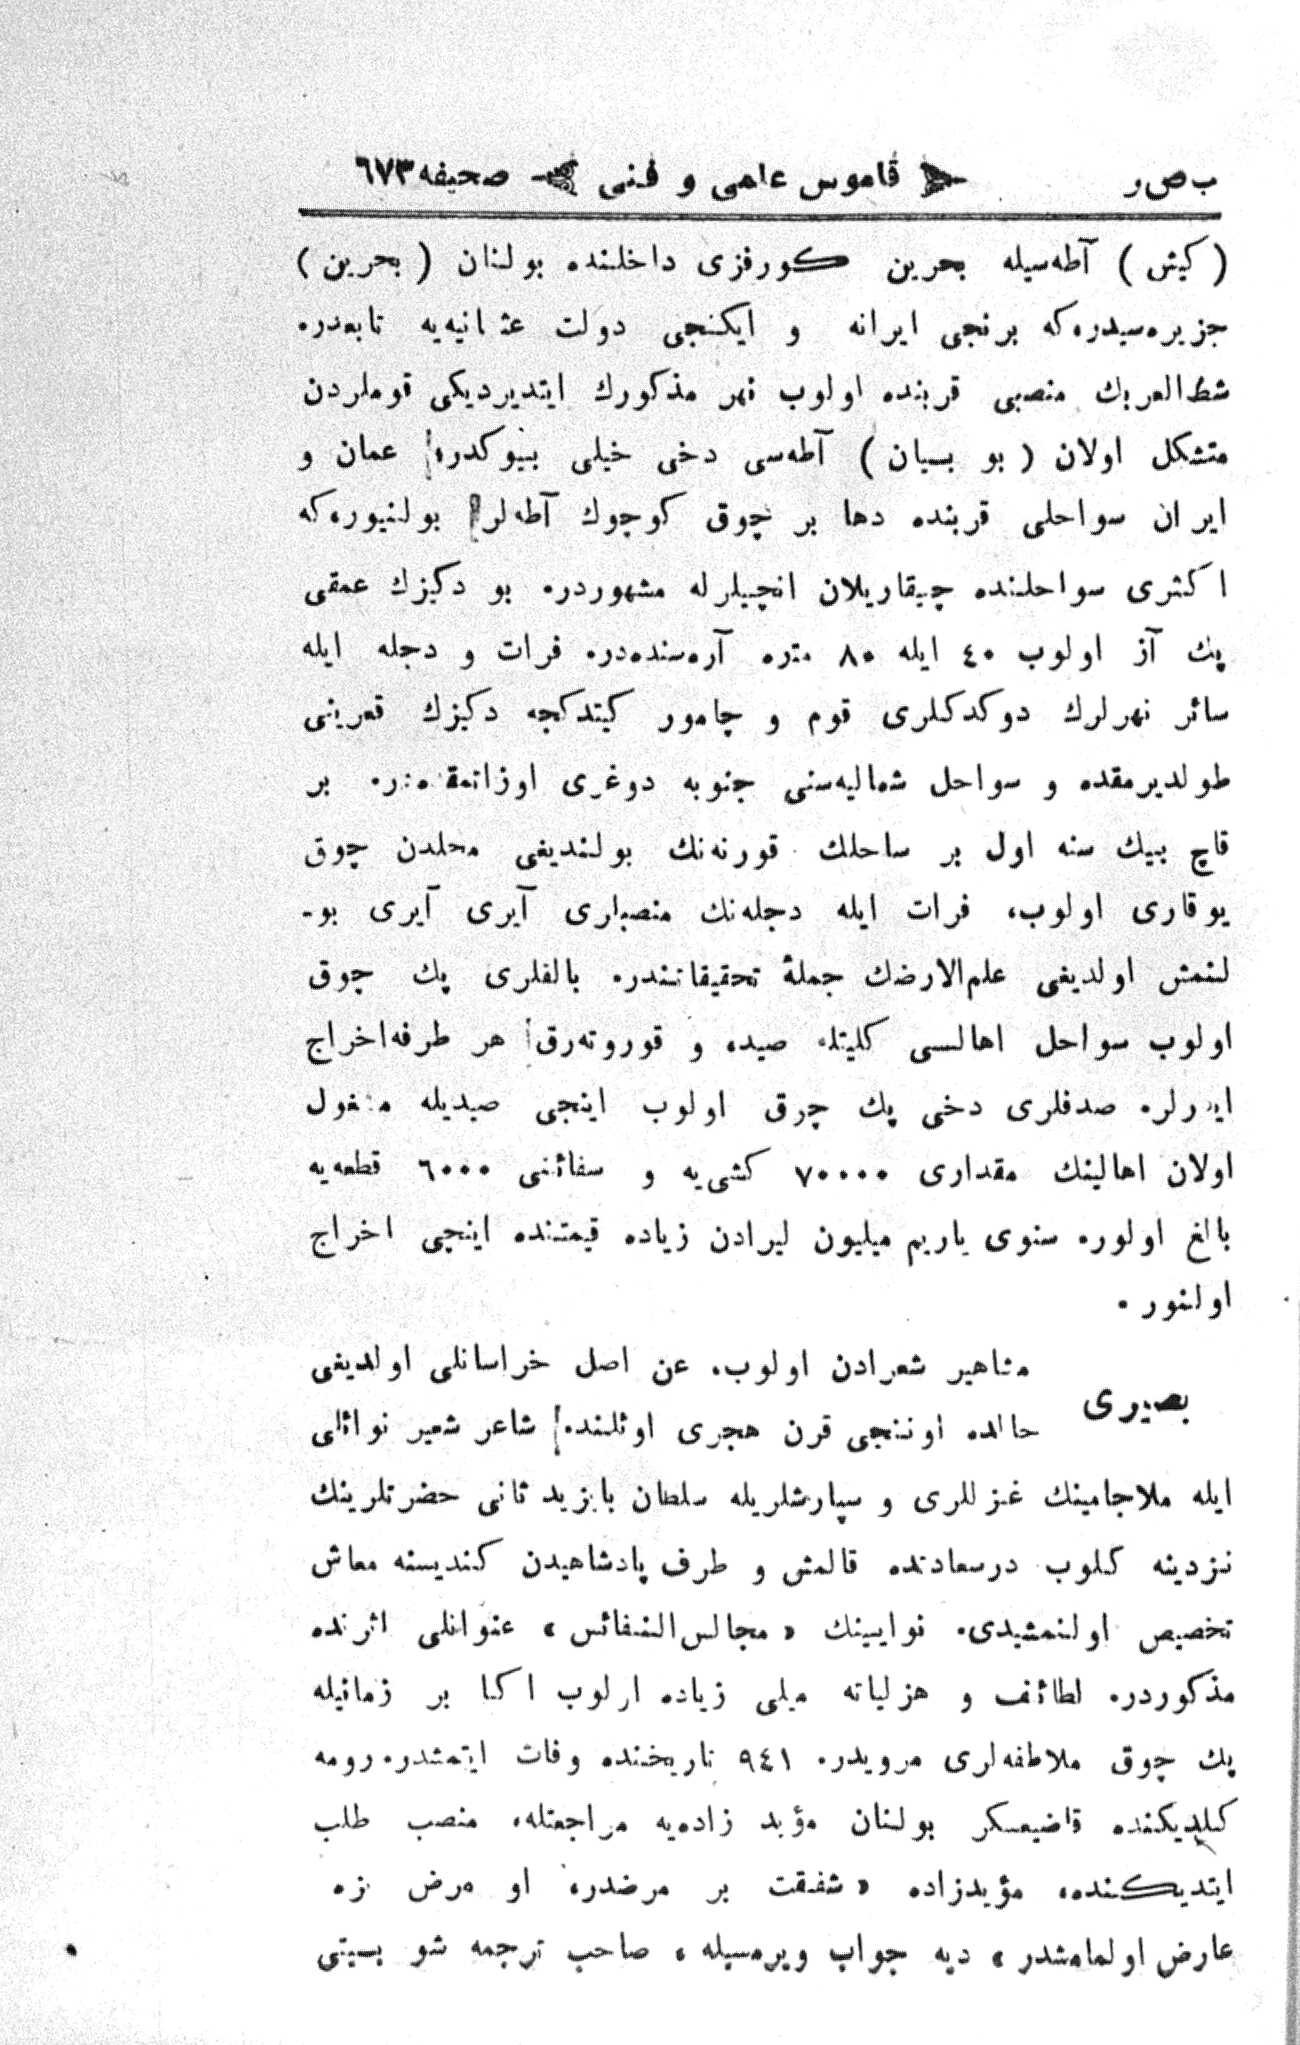 ب ص ر قاموس علمی و فنی صحیفه ٦٧٣
( کیش ) آطه‌سیله بحرین کورفزی داخلنده بولنان ( بحرین )
جزیره‌سیدر.که برنجی ایرانه و ایکنجی دولت عثمانیه‌یه تابعدر.
شط‌العربك منصبی قربنده اولوب نهر مذکورك ایتدیردیکی قوملردن
متشکل اولان ( بو بیان ) آطه‌سی دخی خیلی بیوکدر. عمان و
ایران سواحلی قربنده دها بر چوق کوچوك آطه‌لر بولنیور.که
اکثری سواحلنده چیقاریلان انچیلرله مشهوردر. بو دکیزك عمقی
پك آز اولوب ٤٠ ایله ٨٠ متره آره‌سنده‌در. فرات و دجله ایله
سائر نهرلرك دوکدکلری قوم و چامور کیتدکجه دکیزك قعرینی
طولدیرمقده و سواحل شمالیه‌سنی جنوبه دوغری اوزاتمقده‌در. بر
قاچ بیك سنه اول بر ساحلك قورنه‌نك بولندیغی محلدن چوق
یوقاری اولوب، فرات ایله دجله‌نك منصبلری آیری آیری بو-
لنمش اولدیغی علم‌الارضك جملهٔ تحقیقاتندر. بالقلری پك چوق
اولوب سواحل اهالیسی کلیتله صیده و قوروته‌رق هر طرفه اخراج
ایدرلر. صدفلری دخی پك چوق اولوب اینجی صیدیله مشغول
اولان اهالینك مقداری ٧٠٠٠٠ کشی‌یه و سفائنی ٦٠٠٠ قطعه‌یه
بالغ اولور. سنوی یاریم میلیون لیرادن زیاده قیمتنده اینجی اخراج
اولنور.
بصیری مشاهیر شعرادن اولوب. عن اصل خراسانلی اولدیغی
حالده اوننجی قرن هجری اوئلنده شاعر شهیر نوائلی
ایله ملاجامینك غزللری و سپارشلریله سلطان بایزید ثانی حضرتلرینك
نزدینه کلوب درسعادتده قالمش و طرف پادشاهیدن کندیسنه معاش
تخصیص اولنمشیدی. نوایینك « مجالس‌النفائس » عنوانلی اثرنده
مذکوردر. لطائف و هزلیاته میلی زیاده اولوب اکا بر زمانیله
پك چوق ملاطفه‌لری مرویدر. ٩٤١ تاریخنده وفات ایتمشدر. رومه
کلدیکنده قاضیعسکر بولنان مؤید زاده‌یه مراجعتله، منصب طلب
ایتدیکنده، مؤیدزاده « شفقت بر مرضدر، او مرض بزه
عارض اولمامشدر » دیه جواب ویرمسیله ، صاحب ترجمه شو بیتی